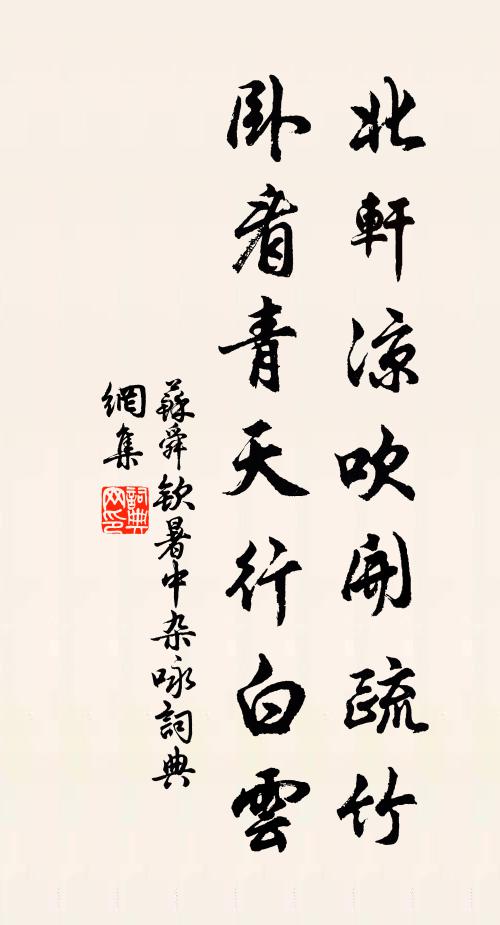 北軒涼吹開疏竹
卧看青天行白雲
蘇舜欽暑中杂咏詞典
網集
詞典
网印